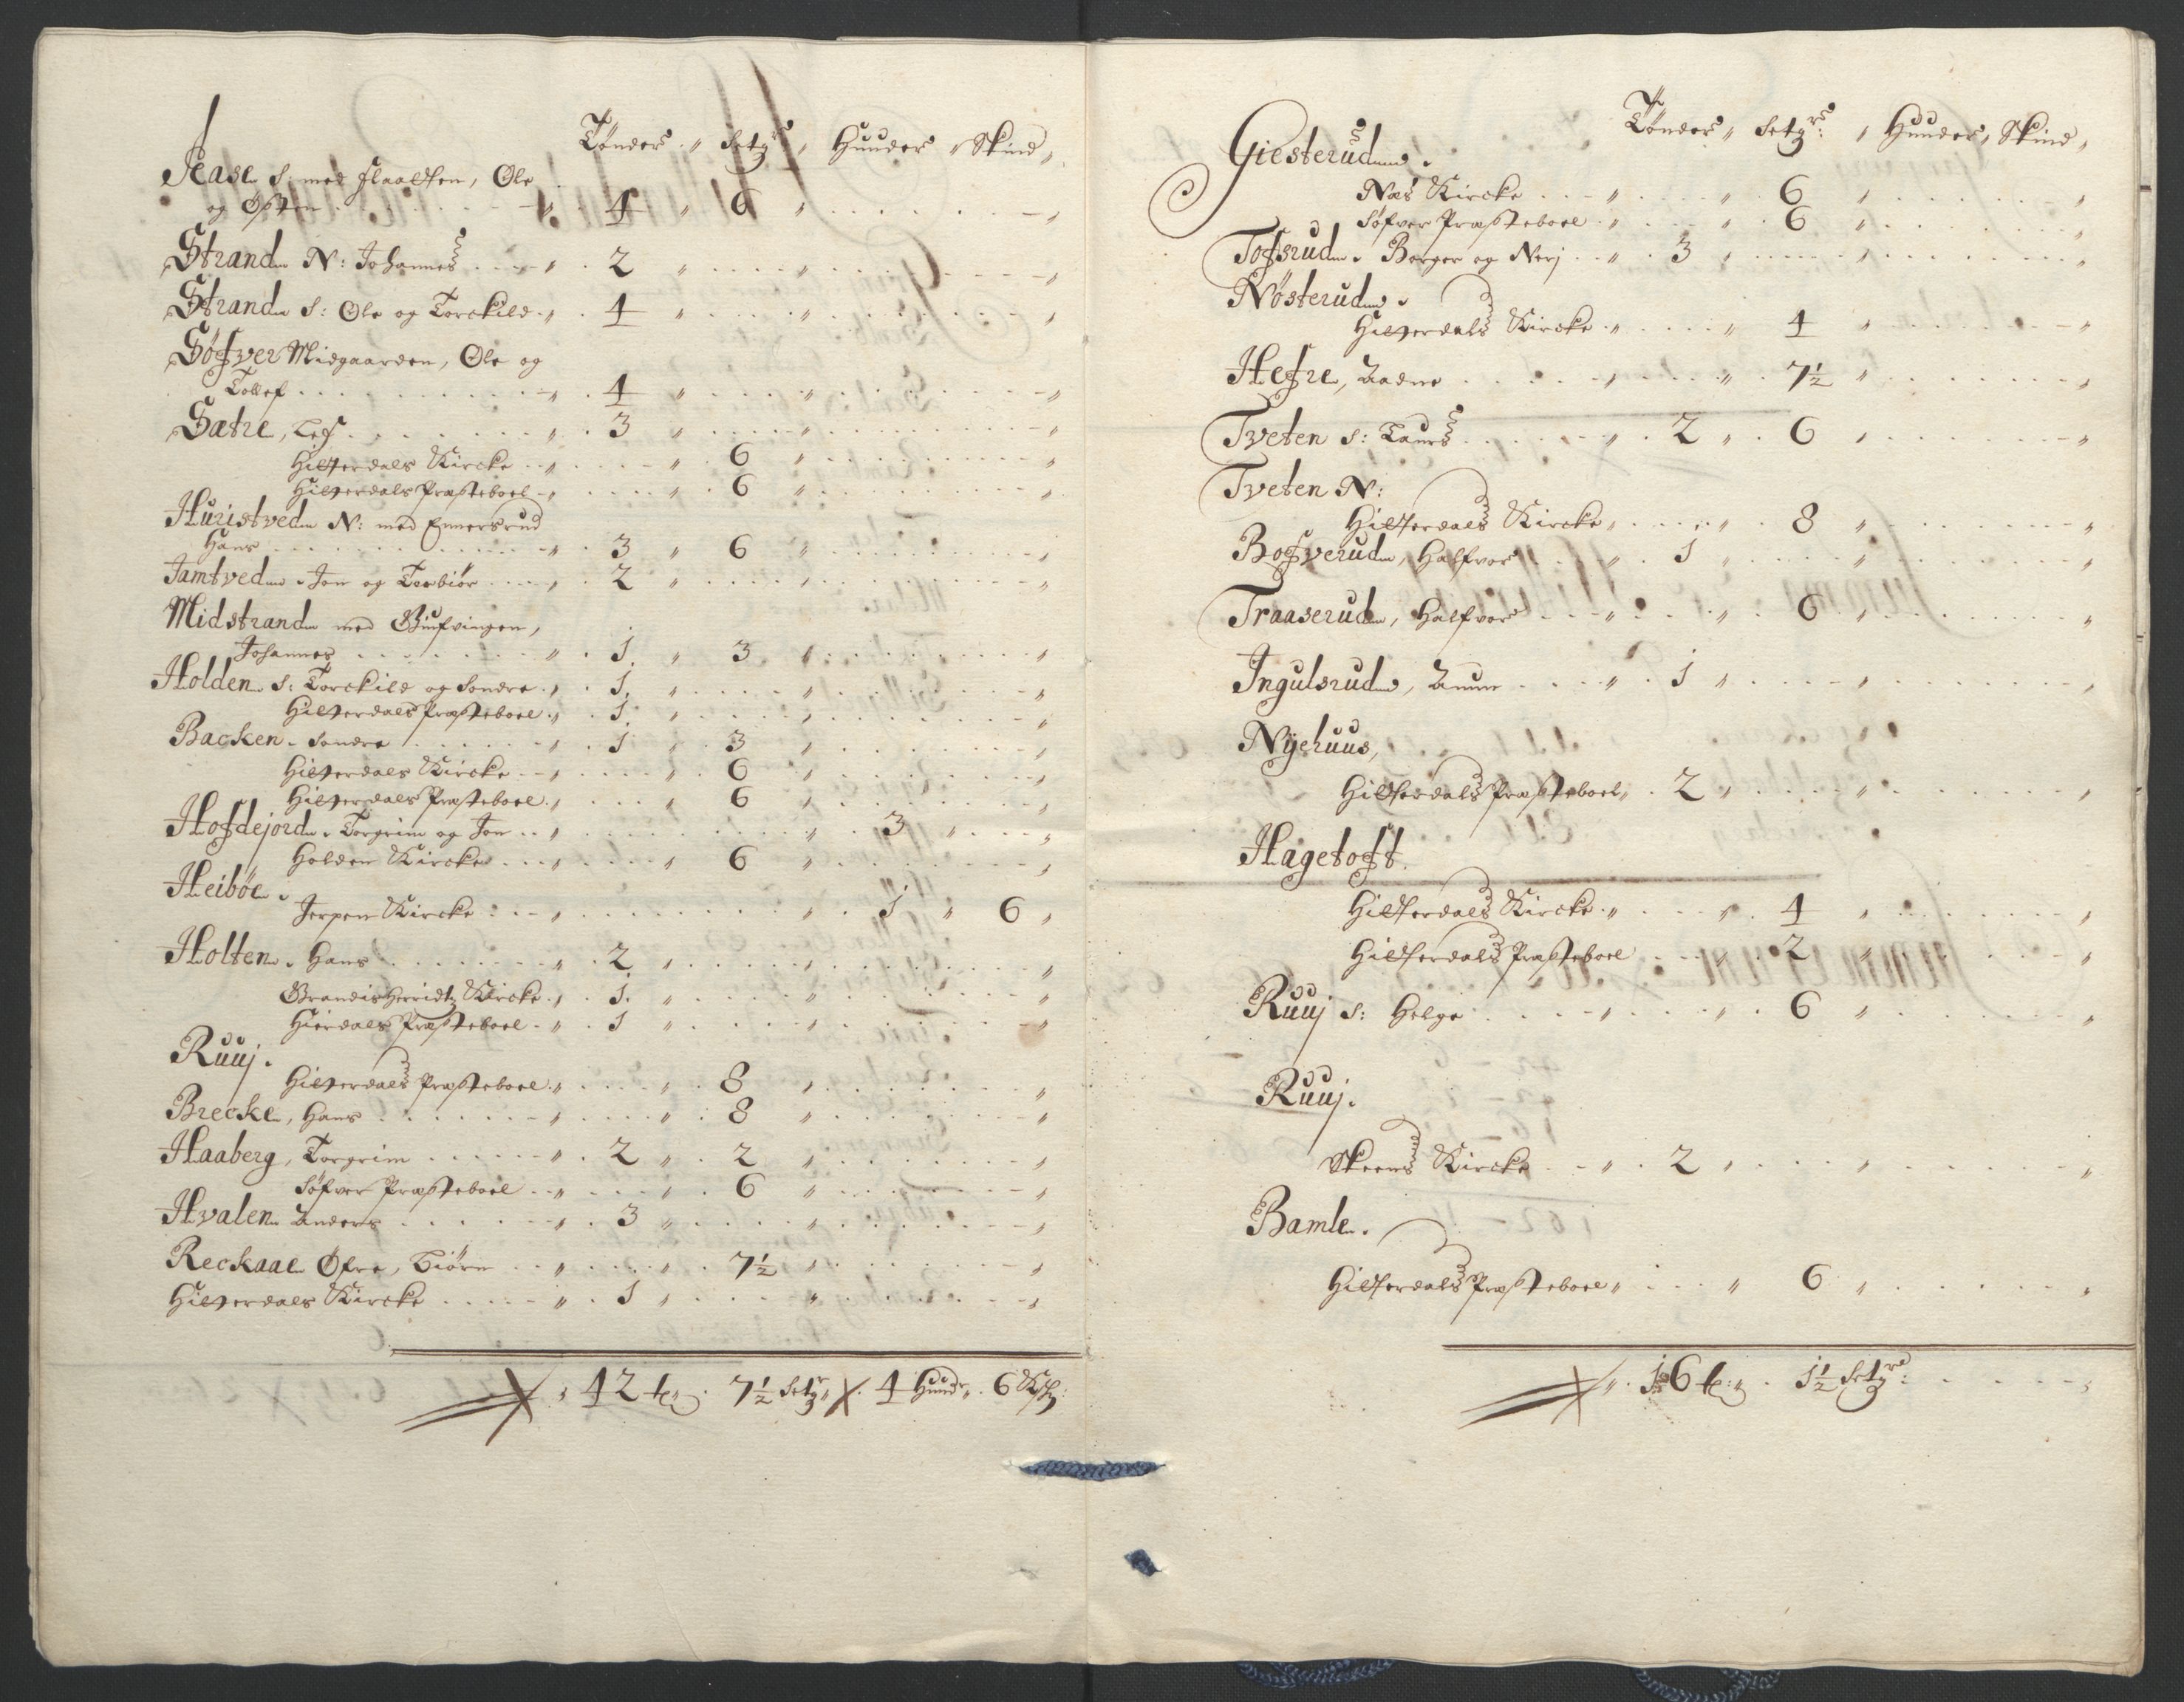 Tønder. Setg. Huuder Skind
Aase S: med Flaatten, Ole
og Østen 4 6
Strand N: Johannes 2
Strand S: Ole og Torckild 4
Søfver Midgaarden, Ole og
Tollef 4
Sætre, Leif 3
Hitterdals Kircke 6
Hitterdals Præsteboel 6
Huristved N: med Ennersrud
Hans 3 6
Jamtved Jon og Torbiør 2
Midstrand med Gunfvingen,
Johannes 1 3
Holden S: Torckild og Sondre 1
Hitterdals Præsteboel 1
Backen Sondre 1 3
Hitterdals Kircke 6
Hitterdals Præsteboel 6
Hofdejord Torgrim og Jon 3
Holden Kircke 6
Heiböe
Jerpen Kircke 1 6
Holten Hans 2
Brandis herridtz Kircke 1
Hierdals Præsteboel 1
Ruuj.
Hitterdals Præsteboel 8
Brecke, Hans 8
Haaberg, Torgrim 2 2
Søfver Præsteboel 6
Hvalen Anders 3
Reckaae Øfre, Biørn 7½
Hitterdals Kircke 1
42 t 7½ Setgr 4 Huudr 6 Sk:
Tønder Setgrs: Huuder, Skind,
Giesterud
Næs Kircke 6
Søfver Præsteboel 6
Tofsrud Borger og Nerj 3
Nøsterud
Hitterdals Kircke 4
Hefre, Aadne 7½
Tveten S: Taurs 2 6
Tveten N:
Hitterdals Kircke 8
Bofverud, Halfvor 1
Traaserud, Halfvor 6
Ingulsrud, Anun 1
Nyehuus,
Hitterdals Præsteboel 2
Hagetoft.
Hitterdals Kircke 4
Hitterdals Præsteboel 2
Ruuj S: Helge 6
Ruuj.
Skeens Kircke 2
Bamle.
Hitterdals Præsteboel 6
16 t: 1½ Setgrs: